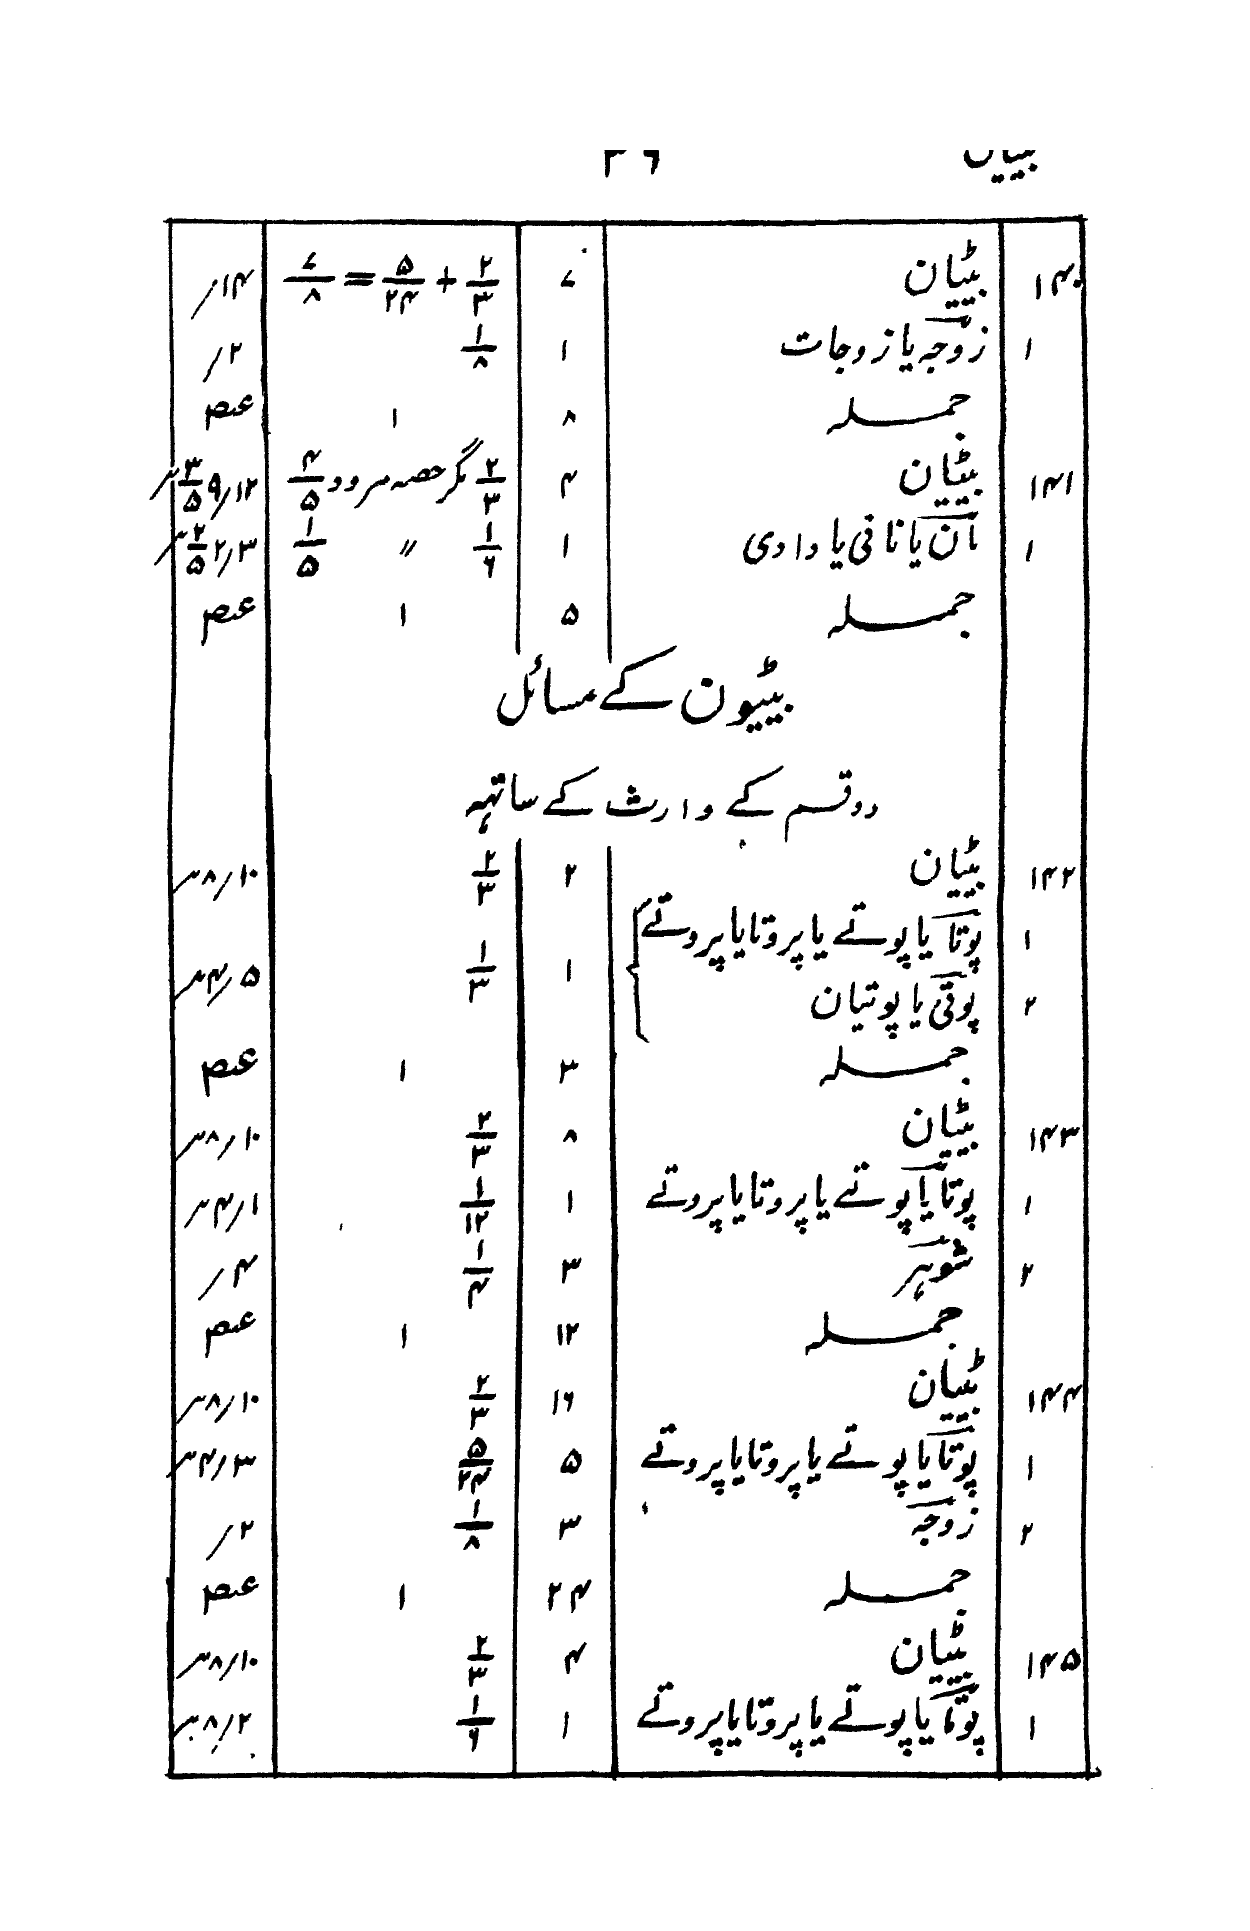 بیٹیان ۳۶
۱۴۰ بیٹیان ۷ ۲/۳ + ۵/۲۴ = ۷/۸ ۱۴؍
۱ زوجہ یا زوجات ۱ ۱/۸ ۲؍
جملہ ۸ ۱ عہ
۱۴۱ بیٹیان ۴ ۲/۳ مگر حصہ مردود ۴/۵ ۱۲؍۹ ۳/۵ ؍
۱ مان یا نانی یا دادی ۱ ۱/۶ 〃 ۱/۵ ۳؍۲ ۲/۵ ؍
جملہ ۵ ۱ عہ
بیٹیون کے مسائل
دو قسم کے وارث کے ساتہہ
۱۴۲ بیٹیان ۲ ۲/۳ ۱۰؍۸؍
۱ پوتا یا پوتے یا پروتا یا پروتے
۱ ۱/۳ ۵؍۴؍
۲ پوتی یا پوتیان
جملہ ۳ ۱ عہ
۱۴۳ بیٹیان ۸ ۲/۳ ۱۰؍۸؍
۱ پوتا یا پوتے یا پروتا یا پروتے ۱ ۱/۱۲ ۱؍۴؍
۲ شوہر ۳ ۱/۴ ۴؍
جملہ ۱۲ ۱ عہ
۱۴۴ بیٹیان ۱۶ ۲/۳ ۱۰؍۸؍
۱ پوتا یا پوتے یا پروتا یا پروتے ۵ ۵/۲۴ ۳؍۴؍
۲ زوجہ ۳ ۱/۸ ۲؍
جملہ ۲۴ ۱ عہ
۱۴۵ بیٹیان ۴ ۲/۳ ۱۰؍۸؍
۱ پوتا یا پوتے یا پروتا یا پروتے ۱ ۱/۶ ۲؍۸؍